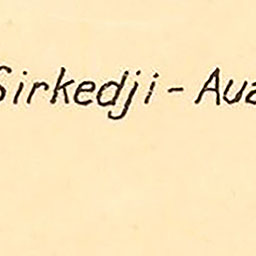 Sirkedji - Aua